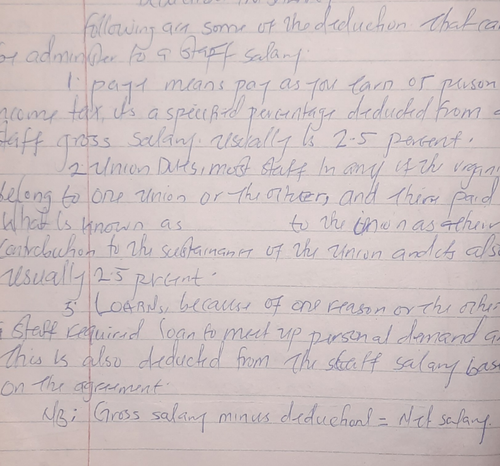 following are some of the deduction that ca
be administer to a staff salary.
1. paye means pay as you earn or person
ncome tax, its a specified percentage deducted from a
staff gross salary. Usually is 2-5 percent.
2 Union Dues, most staff in any of the
belong to one union or the others, and there paid
What is known as to the union as their
Contribution to the sustainance of the union and its also
usually 2-5 percent.
3 LOANS, because of one reason or the other
staff required loan to meet up personal demand an
This is also deducted from the staff salary base
on the agreement.
NB: Gross salary minus deduction = Net salary.